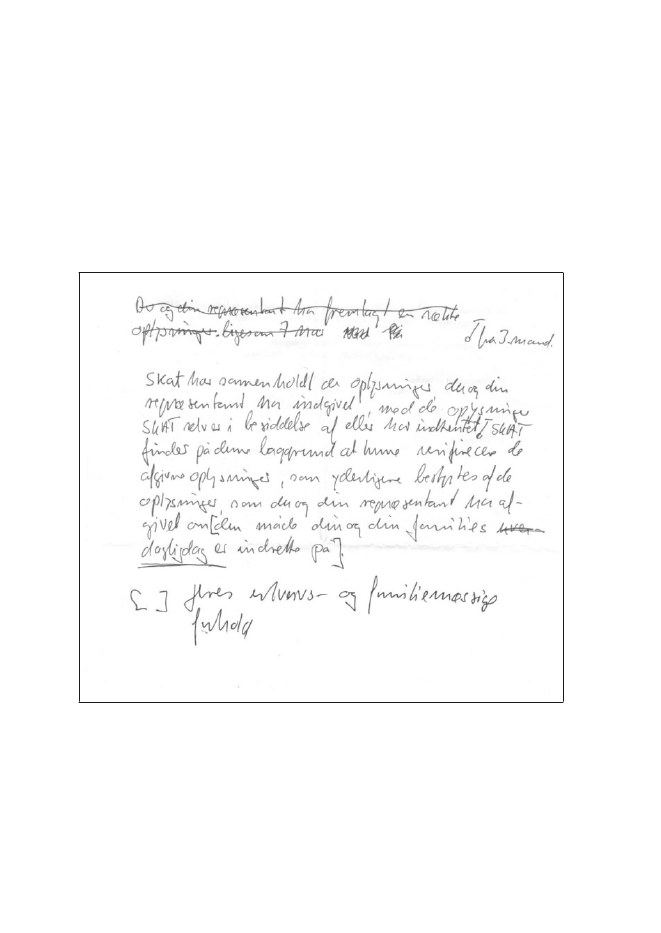 Du og din repræsentant har fremlagt en række
oplysninger. ligesom
fra 3. mand.
SKAT har sammenholdt de oplysninger du og din
repræsentant har indgivet, med de oplysninger
SKAT selv er i besiddelse af eller har indhentet. SKAT
finder på denne baggrund at kunne verificere de
afgivne oplysninger, som yderligere bestyrkes af de
oplysninger, som du og din repræsentant har af-
givet om [den måde din og din families hver-
dagligdag er indrettet på].
[ ] jeres erhvervs- og familiemæssige
forhold